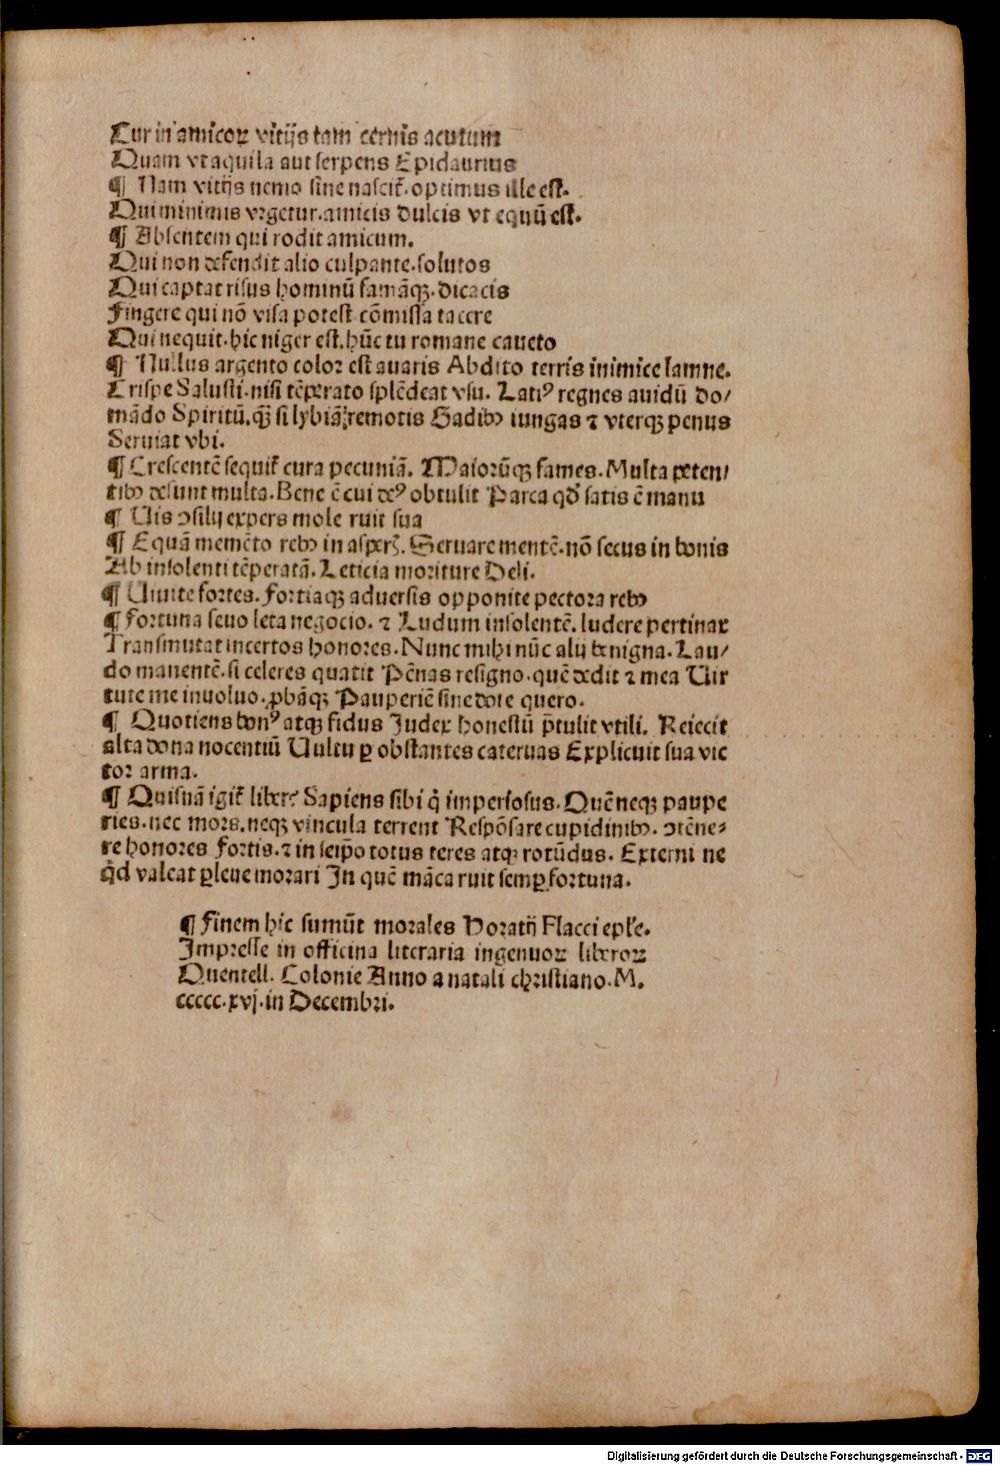 Cur in amicoꝝ vitijs tam cernis acutum
Quam vt aquila aut serpens Epidaurius
¶ Nam vitijs nemo sine nascit᷑. optimus ille est.
Qui minimis vrgetur. amicis dulcis vt equū est.
¶ Absentem qui rodit amicum.
Qui non defendit alio culpante. solutos
Qui captat risus hominū famāqꝫ. dicacis
Fingere qui nō visa potest cōmissa tacere
Qui nequit. hic niger est. hūc tu romane caueto
¶ Nullus argento color est auaris Abdito terris inimice lamne.
Crispe Salusti. nisi tēperato splēdeat vsu. Latiꝰ regnes auidū do/
mādo Spiritū. qꝫ̄ si lybiā remotis Gadibꝫ iungas ⁊ vterqꝫ penus
Seruiat vbi.
¶ Crescentē sequit᷑ cura pecuniā. Maiorūqꝫ fames. Multa peten/
tibꝫ desunt multa. Bene ē cui deꝰ obtulit Parca qđ satis ē manu
¶ Uis ꝯsilij expers mole ruit sua
¶ Equā memēto rebꝫ in asperꝭ. Seruare mentē. nō secus in bonis
Ab insolenti tēperatā. Leticia moriture Deli.
¶ Uiuite fortes. Fortiaqꝫ aduersis opponite pectora rebꝫ
¶ Fortuna seuo leta negocio. ⁊ Ludum insolentē. ludere pertinax
Transmutat incertos honores. Nunc mihi nūc alij benigna. Lau/
do manentē. si celeres quatit Pēnas resigno. quē dedit ⁊ mea Uir
tute me inuoluo. ꝓbāqꝫ Pauperiē sine dote quero.
¶ Quotiens bonꝰ atqꝫ fidus Judex honestū p̄tulit vtili. Reiecit
alta dona nocentiū Uultu ꝑ obstantes cateruas Explicuit sua vic
tor arma.
¶ Quisnā igit᷑ liber? Sapiens sibi q̇ imperiosus. Quē neqꝫ paupe
ries. nec mors. neqꝫ vincula terrent Respōsare cupidinibꝫ. ꝯtēne⸗
re honores Fortis. ⁊ in seip̄o totus teres atqꝫ rotūdus. Externi ne
q̇d valeat ꝑ leue morari In quē māca ruit semꝑ fortuna.
¶ Finem hic sumūt morales Horatij Flacci epl̄e.
Impresse in officina literaria ingenuoꝝ liberoꝝ
Quentell. Colonie Anno a natali christiano. M.
ccccc. xvj. in Decembri.
Digitalisierung gefördert durch die Deutsche Forschungsgemeinschaft - DFG